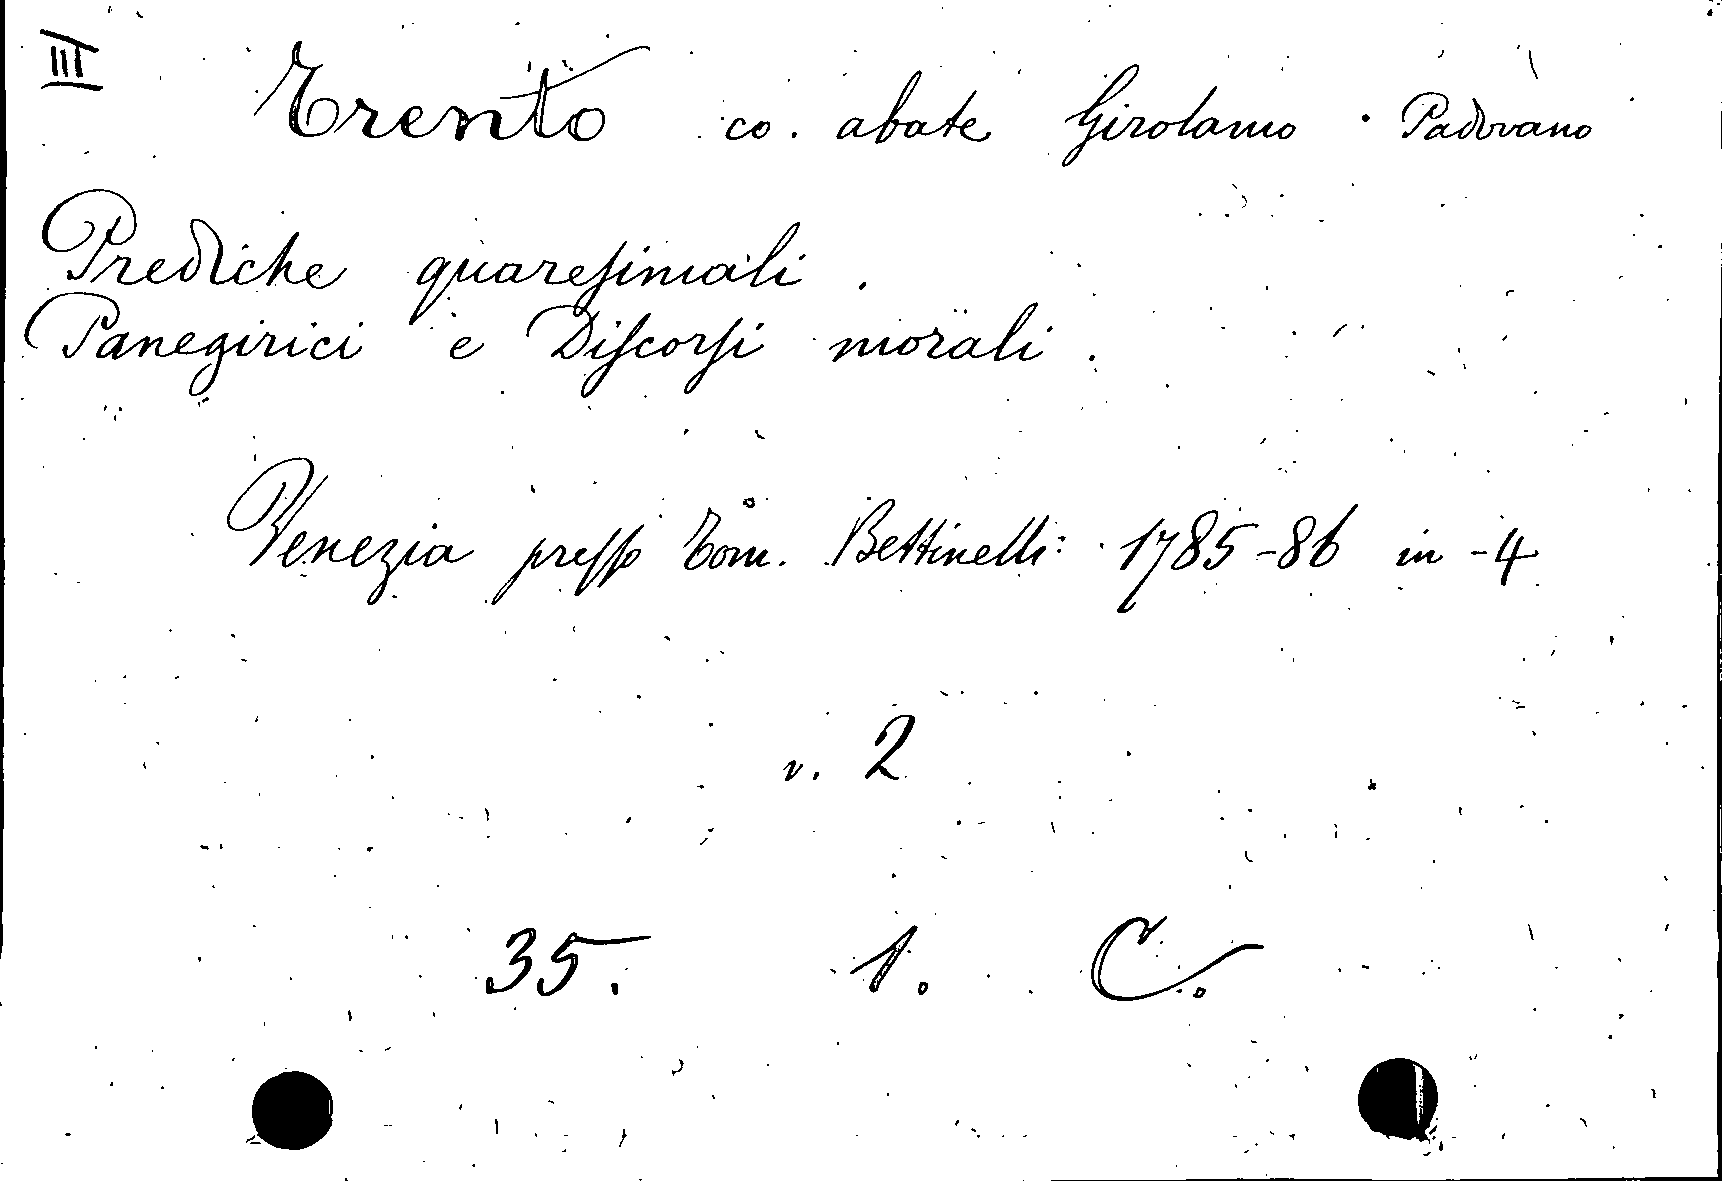 III
Trento co. abate Girolamo. Padovano
Prediche quareſimali.
Panegirici e Diſcorſi morali.
Venezia preſſo Tom. Bettinelli: 1785-86 in-4
v. 2
35. 1. C.